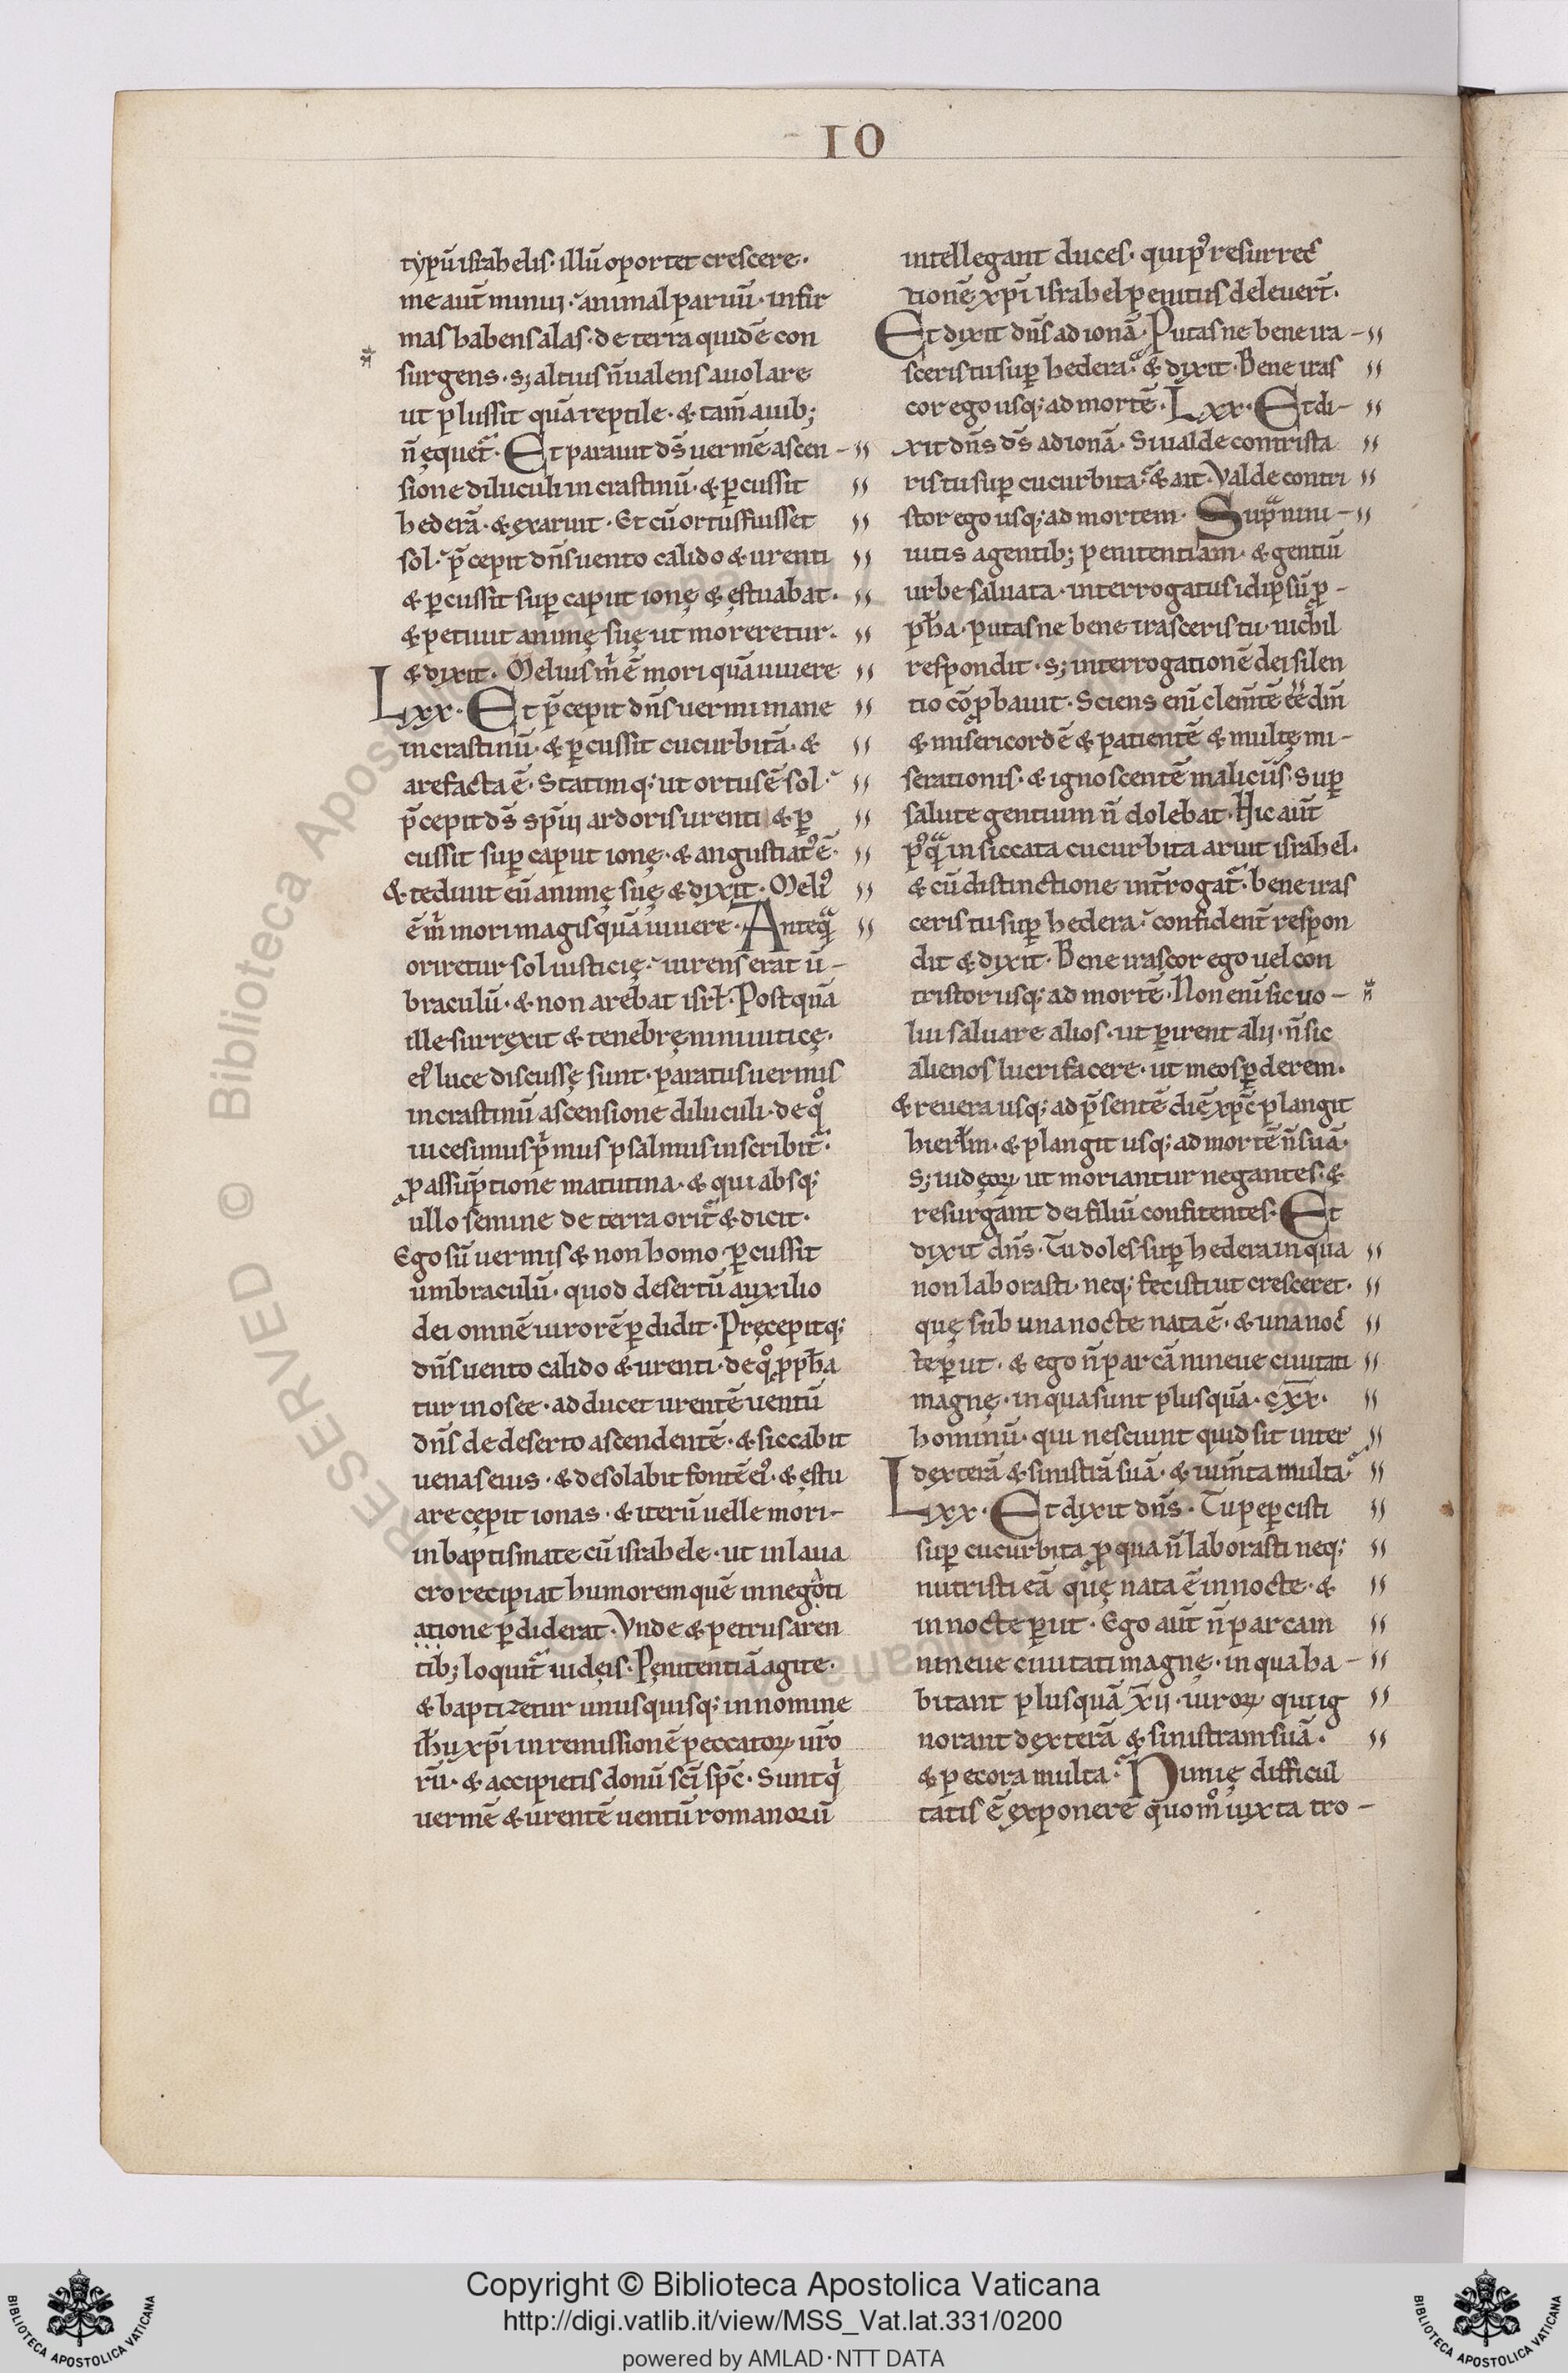 IO
typū israhelis· illū oportet crescere·
me aut̄ minui· animal paruū· infir
mas habens alas· de terra quidē con
surgens· s; altius n̄ ualens auolare
ut plus sit quā reptile· & tam̄ auib;
n̄ ęquet᷑· Et parauit dn̄s uermē ascen-
sione diluculi in crastinū· & ꝑcussit
hederā· & exaruit· Et cū ortus fuisset
sol· p̄cepit dn̄s uento calido & urenti
& ꝑcussit suꝑ caput ionę & ęstuabat·
& petiuit animę suę ut moreretur·
& dixit· Melius m̄ ē mori quā uiuere
Lxx· Et p̄cepit dn̄s uermi mane
in crastinū· & ꝑcussit cucurbitā· &
arefacta ē· Statimq; ut ortus ē sol·
p̄cepit dn̄s sp̄ui ardoris urenti & ꝑ
cussit suꝑ caput ionę· & angustiat᷒ ē·
& teduit eū animę suę & dixit· Meli᷒
ē m̄ mori magis quā uiuere· Anteqͣ̄
oriretur sol iusticię· uirens erat ū-
braculū· & non arebat isrl̄· Postquā
ille surrexit & tenebrę niniuiticę·
ei᷒ luce discussę sunt· paratus uermis
in crastinū ascensione diluculi· de qͦ
uicesimus pͥmus psalmus inscribit᷑·
ꝓ assūptione matutina· & qui absq;
ullo semine de terra orit᷑ & dicit·
Ego sū uermis & non homo· ꝑcussit
umbraculū· quod desertū auxilio
dei omnē uirorē ꝑdidit· Pręcepitq;
dn̄s uento calido & urenti· de qͦ ꝓph̄a
tur in osee· adducet urentē uentū
dn̄s de deserto ascendentē· & siccabit
uenas eius· & desolabit fontē ei᷒· & ęstu
are cępit ionas· & iterū uelle mori-
in baptismate cū israhele· ut in laua
cro recipiat humorem quē in negoti
atione ꝑdiderat· Vnde & petrus aren
tib; loquit᷑ iudęis· Pęnitentiā agite·
& baptizetur unusquisq; in nomine
ih̄u xp̄i in remissionē peccatoꝝ ur̄o
rū· & accipietis donū sc̄i sp̄c· Sunt qͥ
uermē & urentē uentū romanorū
intellegant duces· qui p᷒ resurrec̄
tionē xp̄i israhel penitus deleuer̄t·
Et dixit dn̄s ad ionā· Putasne bene ira-
sceris tu suꝑ hedera· & dixit· Bene iras
cor ego usq; ad mortē· Lxx· Et di-
xit dn̄s ds̄ ad ionā· Si ualde contrista
ris tu suꝑ cucurbita· & ait· Valde contri
stor ego usq; ad mortem· Supͣ nini-
uitis agentib; penitentiam· & gentiū
urbe saluata· interrogatus id ipsū ꝓ-
ph̄a· putasne bene irasceris tu· nichil
respondit· s; interrogationē dei silen
tio cōꝓbauit· Sciens eni clem̄tē ēē dm̄
& misericordē & patientē & multę mi-
serationis· & ignoscentē maliciis· suꝑ
salute gentium n̄ dolebat· Hic aūt
p᷒qͣ̄ insiccata cucurbita aruit israhel·
& cū distinctione int̄rogat᷑· bene iras
ceris tu suꝑ hedera· confident̄ respon
dit & dixit· Bene irascor ego uel con
tristor usq; ad mortē· Non eni sic uo-
lui saluare alios· ut ꝑirent alii· n̄ sic
alienos lucrifacere· ut meos ꝑderem·
& reuera usq; ad p̄sentē diē xp̄c plangit
hierl̄m· & plangit usq; ad mortē n̄ suā·
s; iudęoꝝ ut moriantur negantes· &
resurgant dei filiū confitentes· Et
dixit dn̄s· Tu doles suꝑ hedera in qua
non laborasti· neq; fecisti ut cresceret·
quę sub una nocte nata ē· & una noc̄
te ꝑiit· & ego n̄ parcā nineue ciuitati
magnę· in qua sunt plusquā· cxx̄·
hominū· qui nesciunt quid sit inter
dexterā & sinistrā suā· & ium̄ta multa·
Lxx· Et dixit dn̄s· Tu peꝑcisti
suꝑ cucurbita ꝓ qua n̄ laborasti neq;
nutristi eā quę nata ē in nocte· &
in nocte ꝑiit· Ego aūt n̄ parcam
nineue ciuitati magnę· in qua ha-
bitant plusquā x̄ii· uiroꝝ qui ig
norant dexterā & sinistram suā·
& pecora multa· Nimię difficul
tatis ē exponere quom̊ iuxta tro-
Copyright © Biblioteca Apostolica Vaticana
http://digi.vatlib.it/view/MSS_Vat.lat.331/0200
powered by AMLAD·NTT DATA